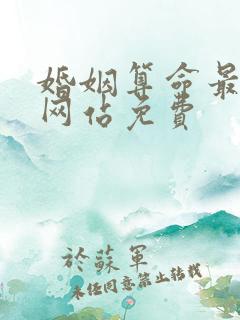 婚姻算命最
网占免费
於蘇軍
未经同意禁止转载